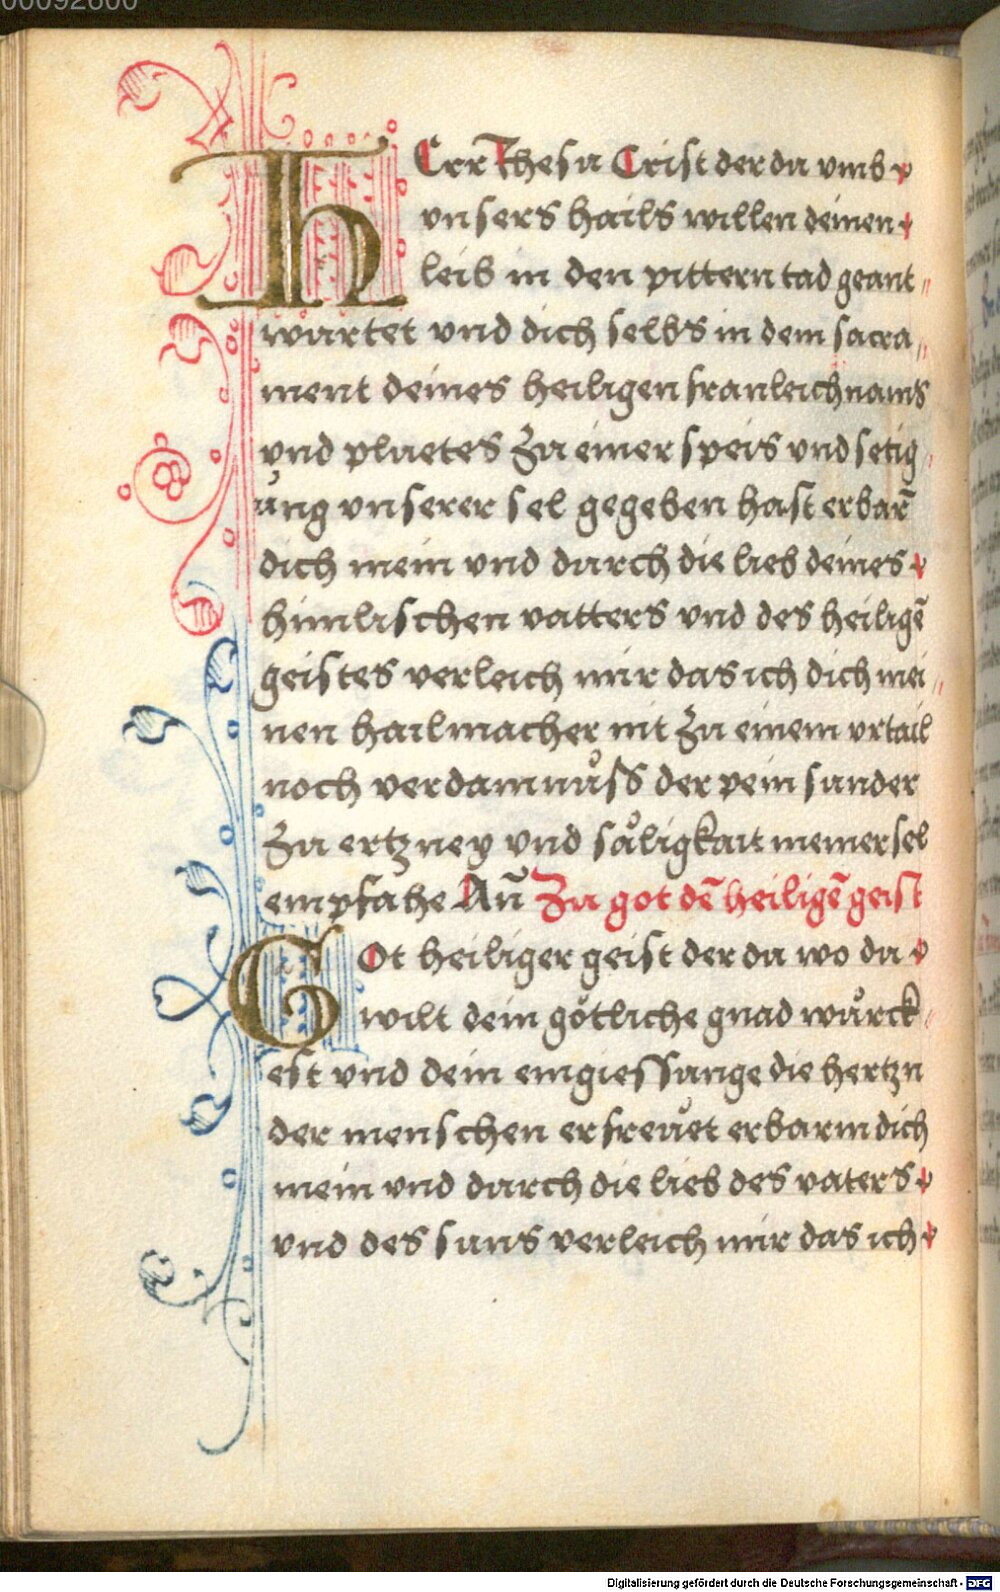 00092600
HErr Jhesu Crist der da vmb
vnsers hails willen deinen
leib in den pittern tod geant„
wurtet vnd dich selbs in dem sacra„
ment deines heiligen fronleichnams
vnd pluetes Zu einer speis vnd setig„
ung vnserer sel gegeben hast erbar̄
dich mein vnd durch die lieb deines
himlischen vatters vnd des heilige̅
geistes verleich mir das ich dich mei„
nen hailmacher nit Zu einem vrtail
noch verdamnuͦss der pein sunder
Zu ertzney vnd saͤligkait meiner sel
empfahe Am̄ Zu got de̅ heilige̅ geist
GOt heiliger geist der da wo du
wilt dein goͤtliche gnad wuͤrck„
est vnd dein eingiessunge die hertzn
der menschen erfreuͤet erbarm dich
mein vnd durch die lieb des vaters
vnd des suns verleich mir das ich
Digitalisierung gefördert durch die Deutsche Forschungsgemeinschaft - DFG